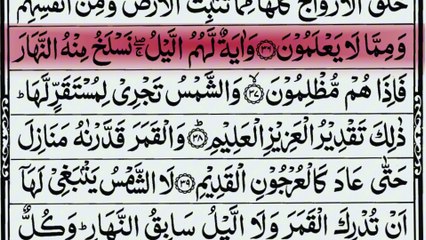 خَلَقَ الْاَزْوَاجَ كُلَّهَا مِمَّا تُنْۢبِتُ الْاَرْضُ وَمِنْ اَنْفُسِهِمْ
وَمِمَّا لَا يَعْلَمُوْنَ ﴿۳۶﴾ وَاٰيَةٌ لَّهُمُ الَّيْلُ ۖۚ نَسْلَخُ مِنْهُ النَّهَارَ
فَاِذَا هُمْ مُّظْلِمُوْنَ ﴿۳۷﴾ وَالشَّمْسُ تَجْرِيْ لِمُسْتَقَرٍّ لَّهَا ؕ
ذٰلِكَ تَقْدِيْرُ الْعَزِيْزِ الْعَلِيْمِ ﴿۳۸﴾ وَالْقَمَرَ قَدَّرْنٰهُ مَنَازِلَ
حَتّٰى عَادَ كَالْعُرْجُوْنِ الْقَدِيْمِ ﴿۳۹﴾ لَا الشَّمْسُ يَنْۢبَغِيْ لَهَاۤ
اَنْ تُدْرِكَ الْقَمَرَ وَلَا الَّيْلُ سَابِقُ النَّهَارِ ؕ وَكُلٌّ